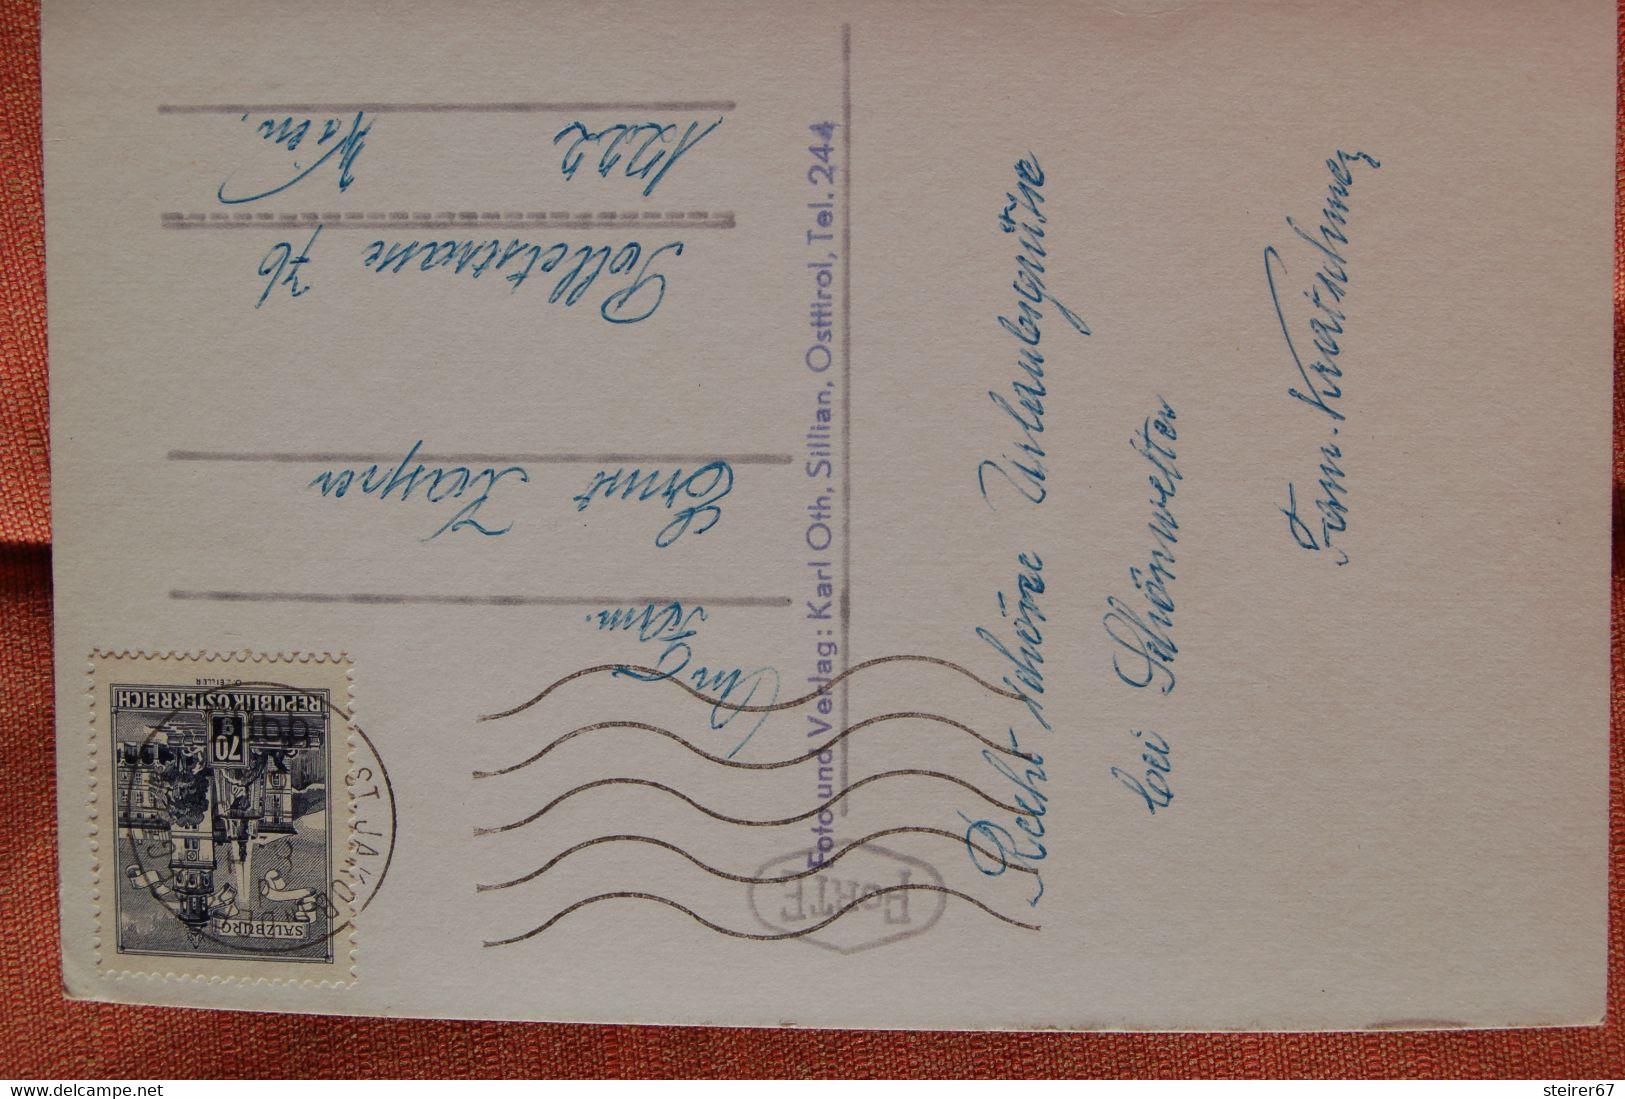 Recht schöne Urlaubsgrüße
bei Schönwetter
Fam. Kratschmer
Foto und Verlag: Karl Oth, Sillian, Osttirol, Tel. 244
FORTE
An
Fam.
Ernst Kasper
Polletstrasse 76
1222 Wien,
REPUBLIK ÖSTERREICH
70 g
SALZBURG
ST. JAKOB
delcampe.net
steirer67